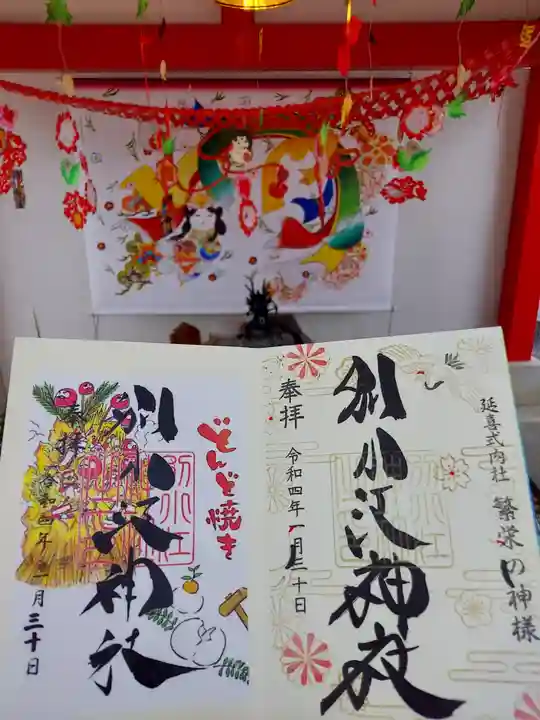 どんど焼き
別小江神社
奉拝
令和四年
一月三十日
延喜式内社 繁栄の神様
別小江神社
奉拝
令和四年一月三十日